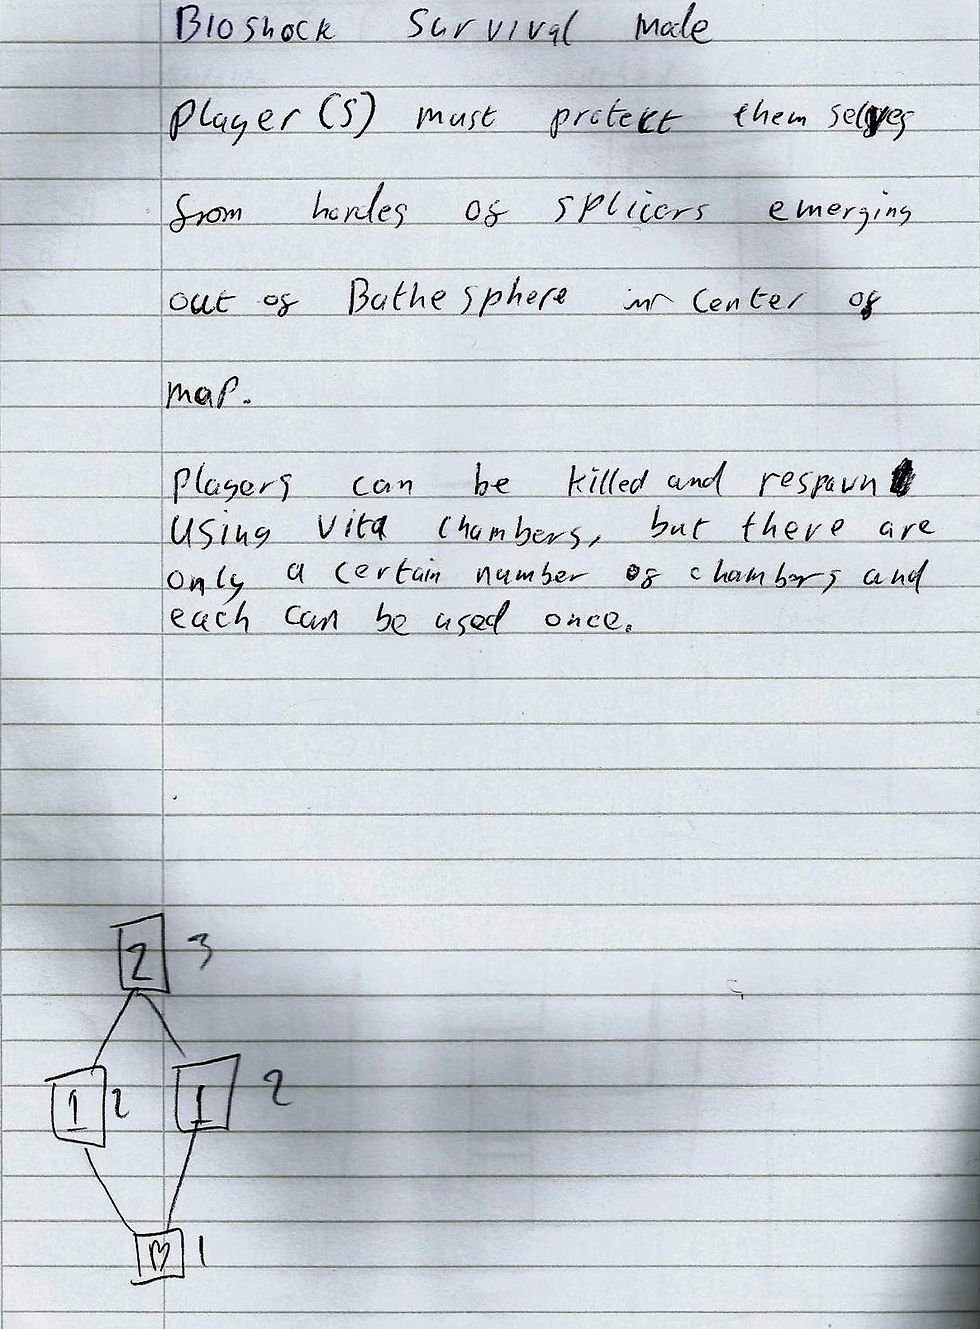 Bioshock Survival Mode
Player(s) must protect themselves
from hordes of splicers emerging
out of Bathesphere in center of
map.
Players can be killed and respawn
using vita chambers, but there are
only a certain number of chambers and
each can be used once.
2 3
1 2 1 2
1